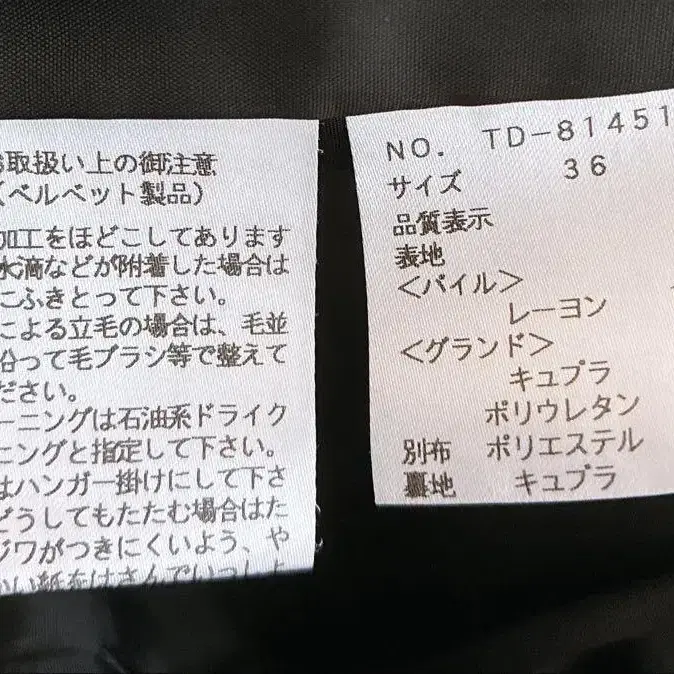 取扱い上の御注意
(ベルベット製品)
加工をほどこしてあります
水滴などが附着した場合は
こふきとって下さい。
による立毛の場合は、毛並
沿って毛ブラシ等で整えて
ださい。
ーニングは石油系ドライク
ニングと指定して下さい。
はハンガー掛けにして下さ
どうしてもたたむ場合はた
ジワがつきにくいよう、や
かい紙をはさんでいっしょ
NO. TD-81451
サイズ 36
品質表示
表地
<パイル>
レーヨン
<グランド>
キュプラ
ポリウレタン
別布 ポリエステル
裏地 キュプラ